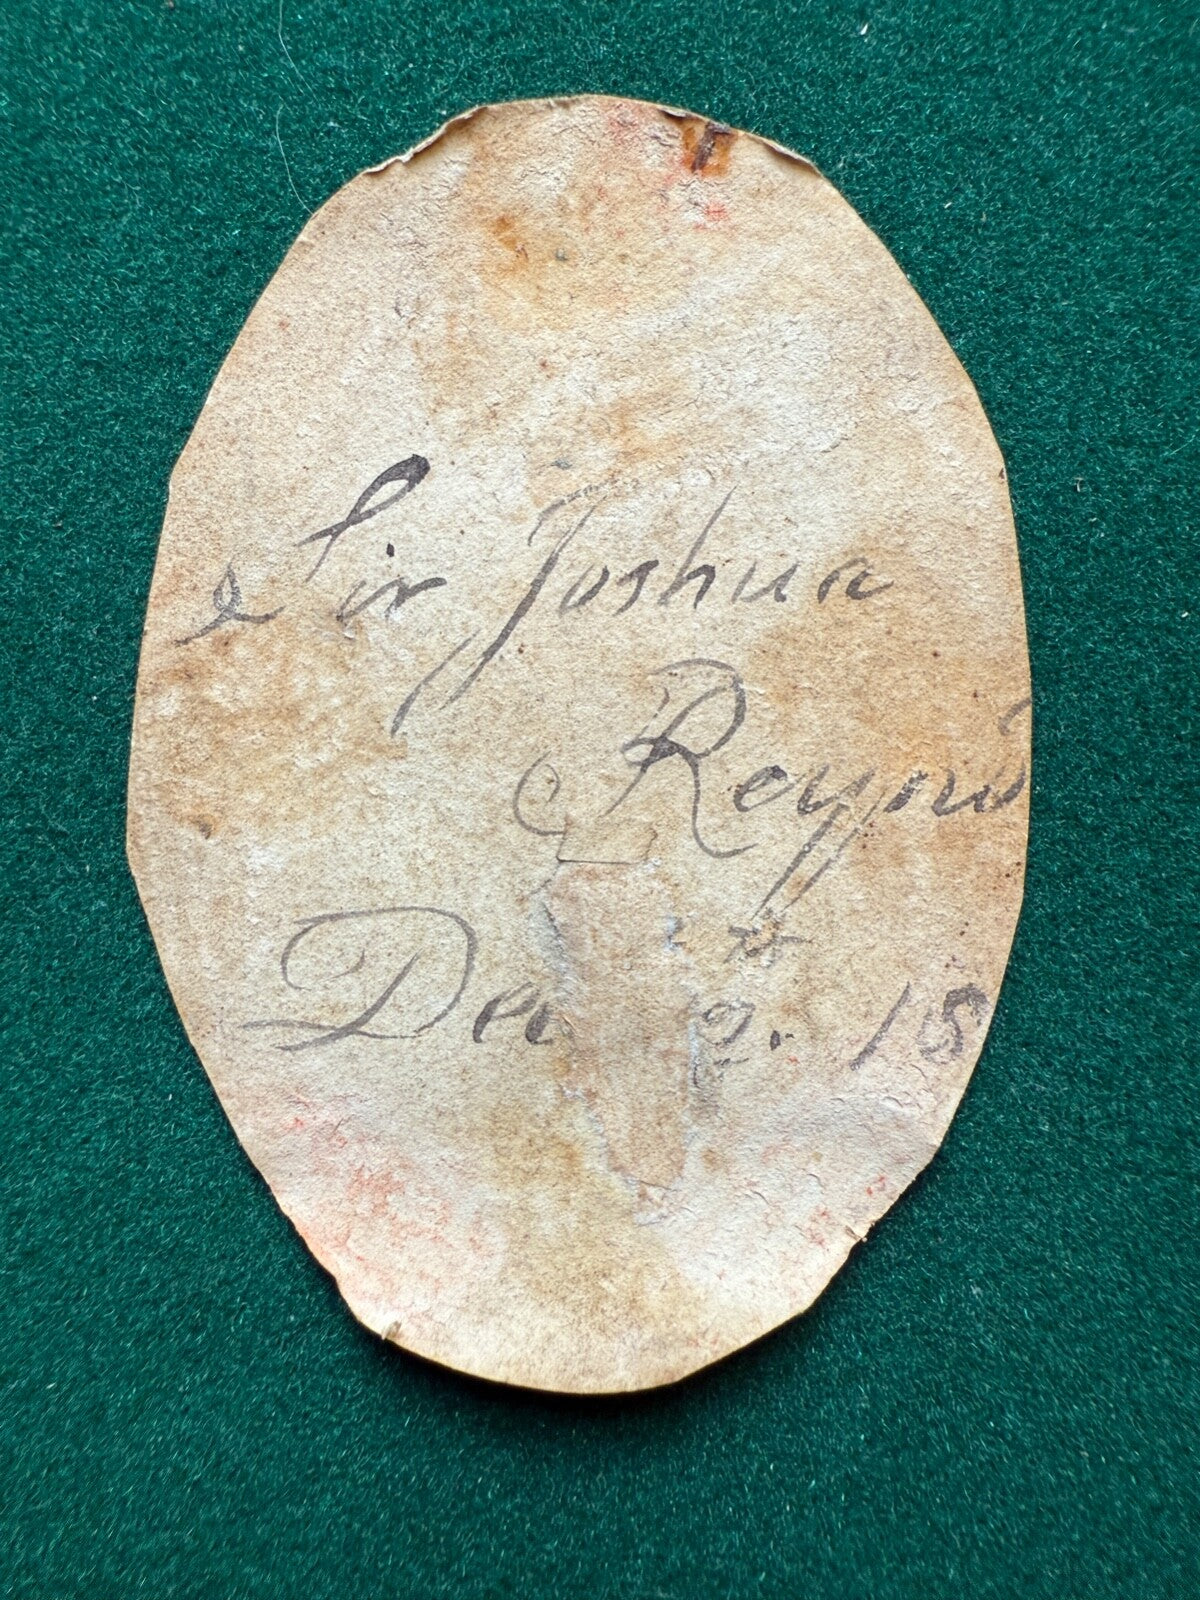 Sir Joshua
Reyno
Dec 2. 18